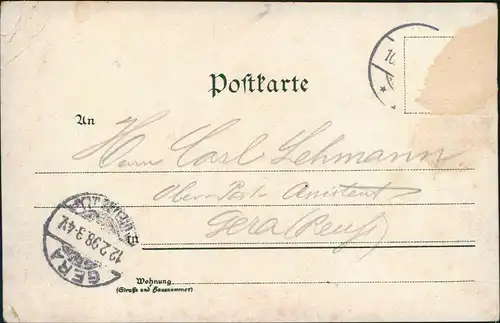 Postkarte
An
Herrn Carl Lehmann
Ober-Post-Assistent
Gera (Reuß)
in
GERA
12.2.98.3-4N.
Wohnung
(Straße und Hausnummer)